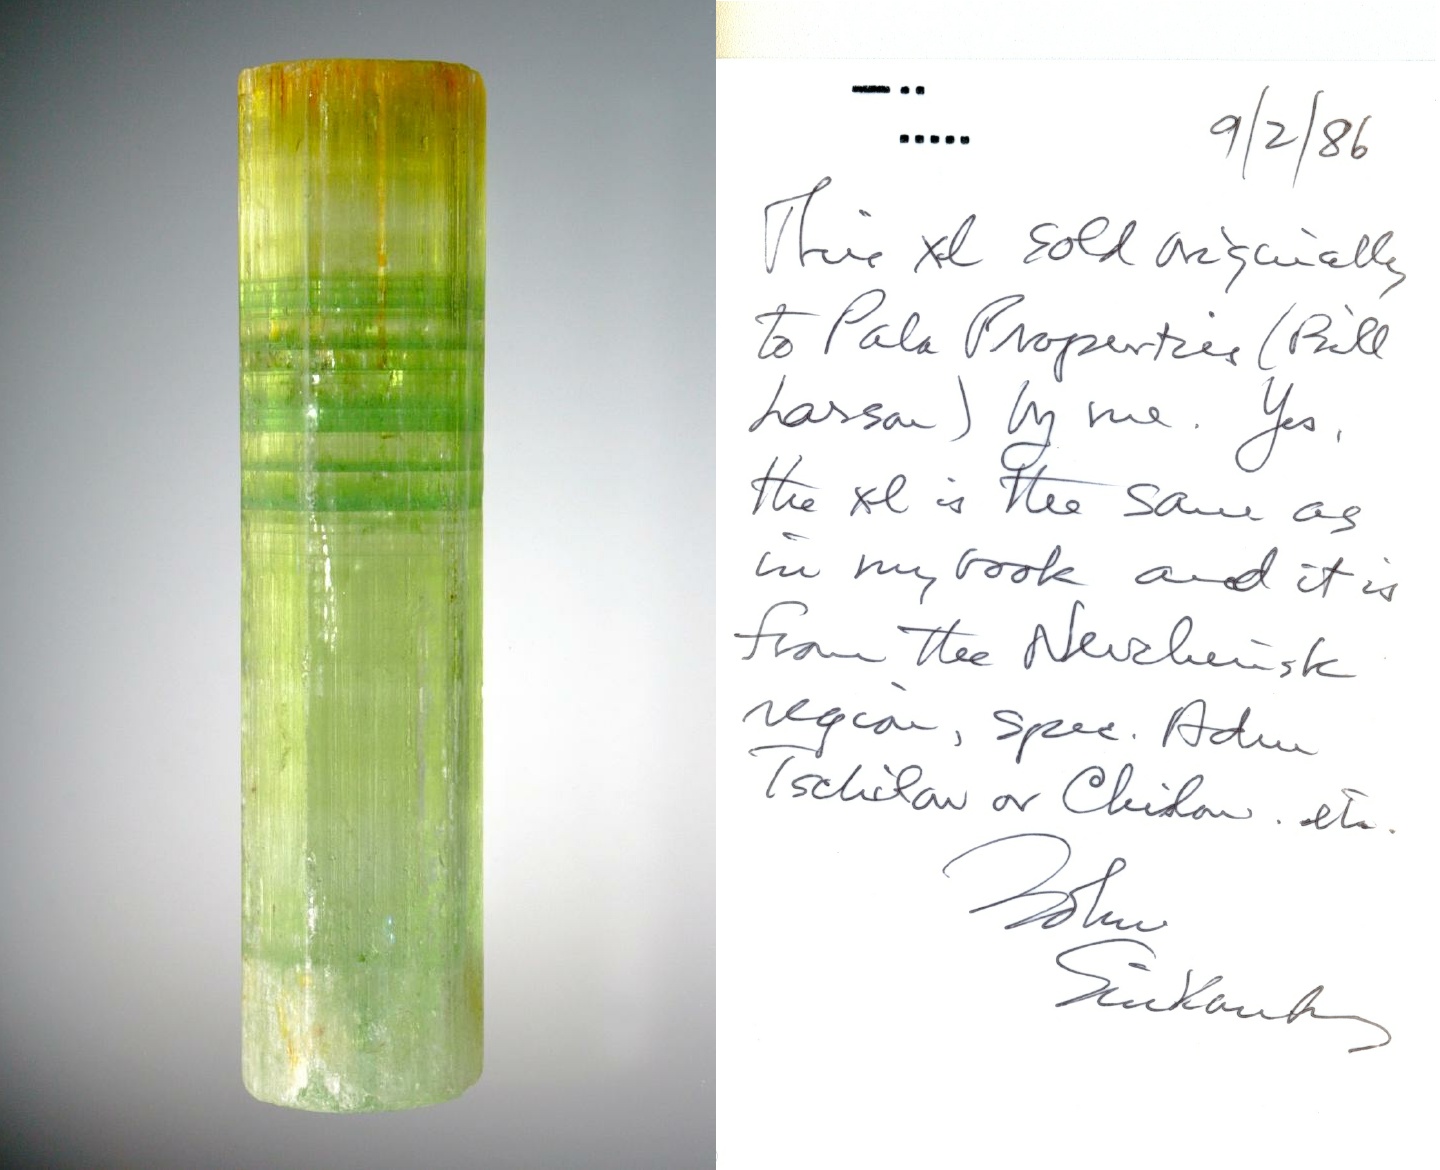 9/2/86
This xl sold originally
to Pala Properties (Bill
Larson) by me. Yes,
the xl is the same as
in my book and it is
from the Nerchinsk
region, spec. Adun
Tschilon or Chilon. etc.
John
Sinkankas